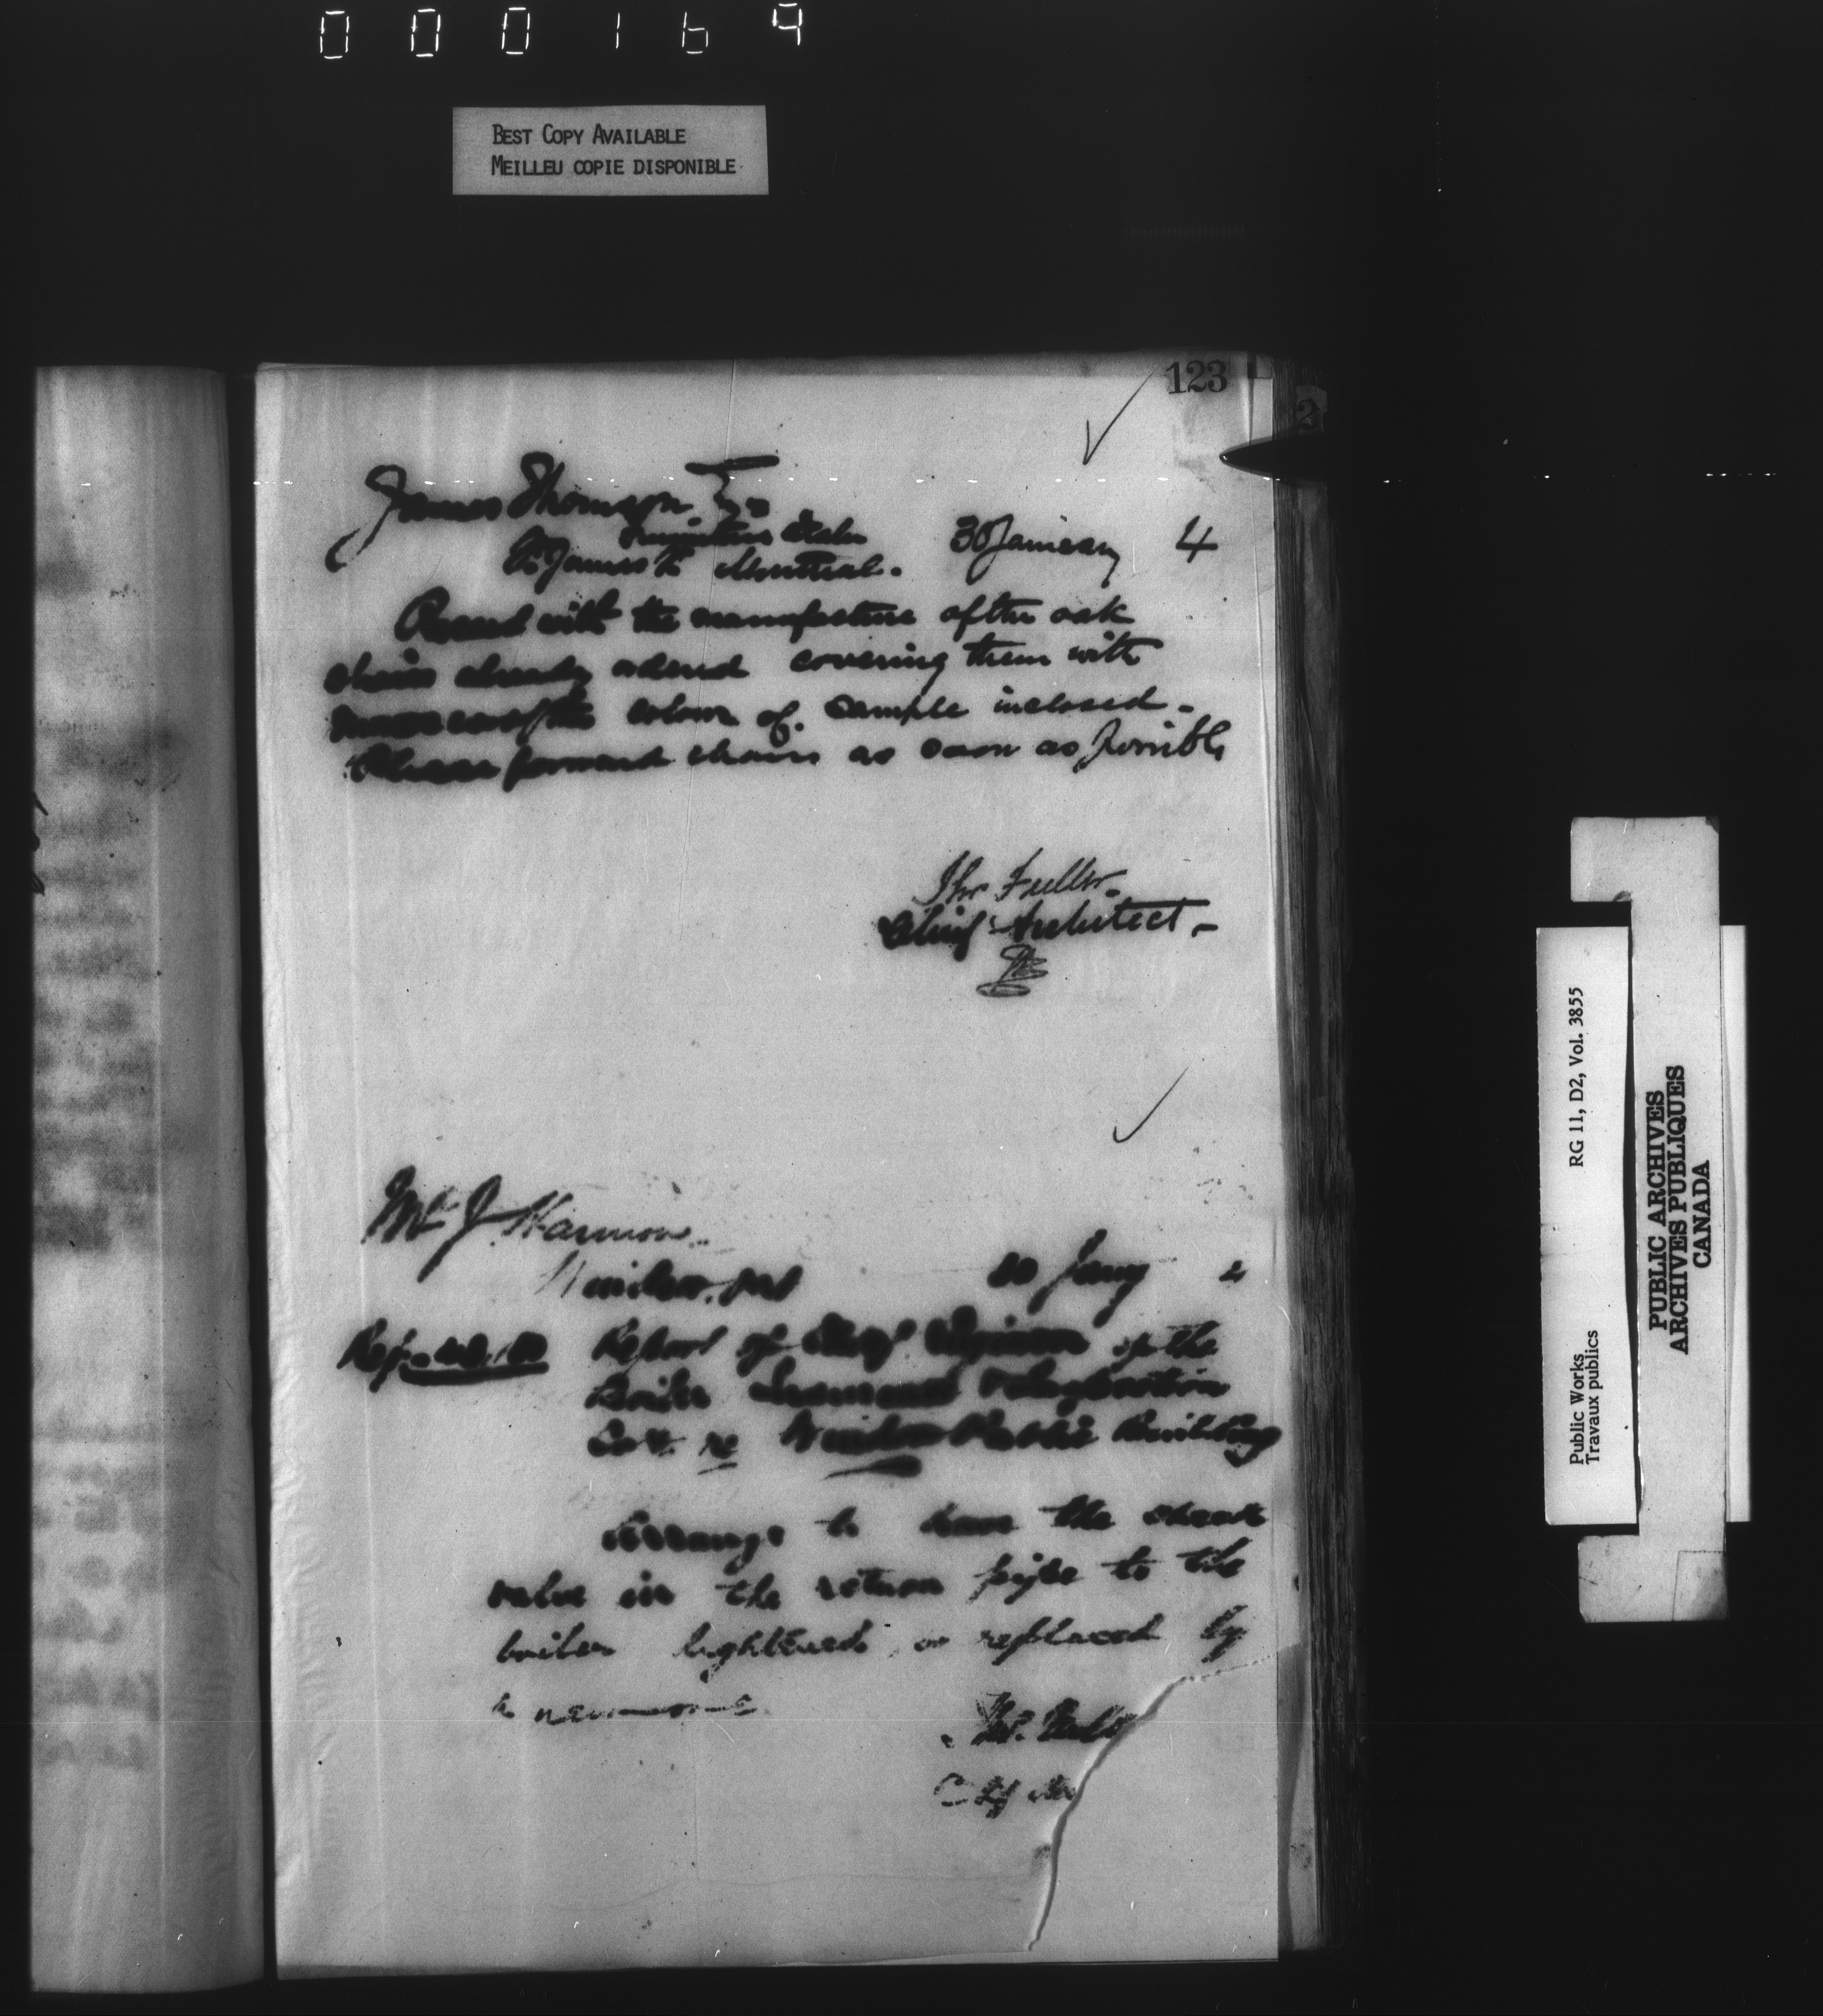 000169
BEST COPY AVAILABLE
MEILLEU COPIE DISPONIBLE
123
James Thomson Esq
Furniture Maker
St James St Montreal. 30 January 4
Proceed with the manufacture of the oak
chairs already ordered covering them with
morocco of the colour of sample inclosed -
Please forward chairs as soon as possible
Thos Fuller
Chief Architect -
Mr J. Harmon
Windsor. Ont 30 Jany 4
Report of Chief Engineer of the
Boiler Insurance & Inspection
Co'y. re Windsor Public Building
Arrange to have the check
valve in the return pipe to the
boiler tightened or replaced by
a new one
Thos. Full
RG 11, D2, Vol. 3855
Public Works
Travaux publics
PUBLIC ARCHIVES
ARCHIVES PUBLIQUES
CANADA